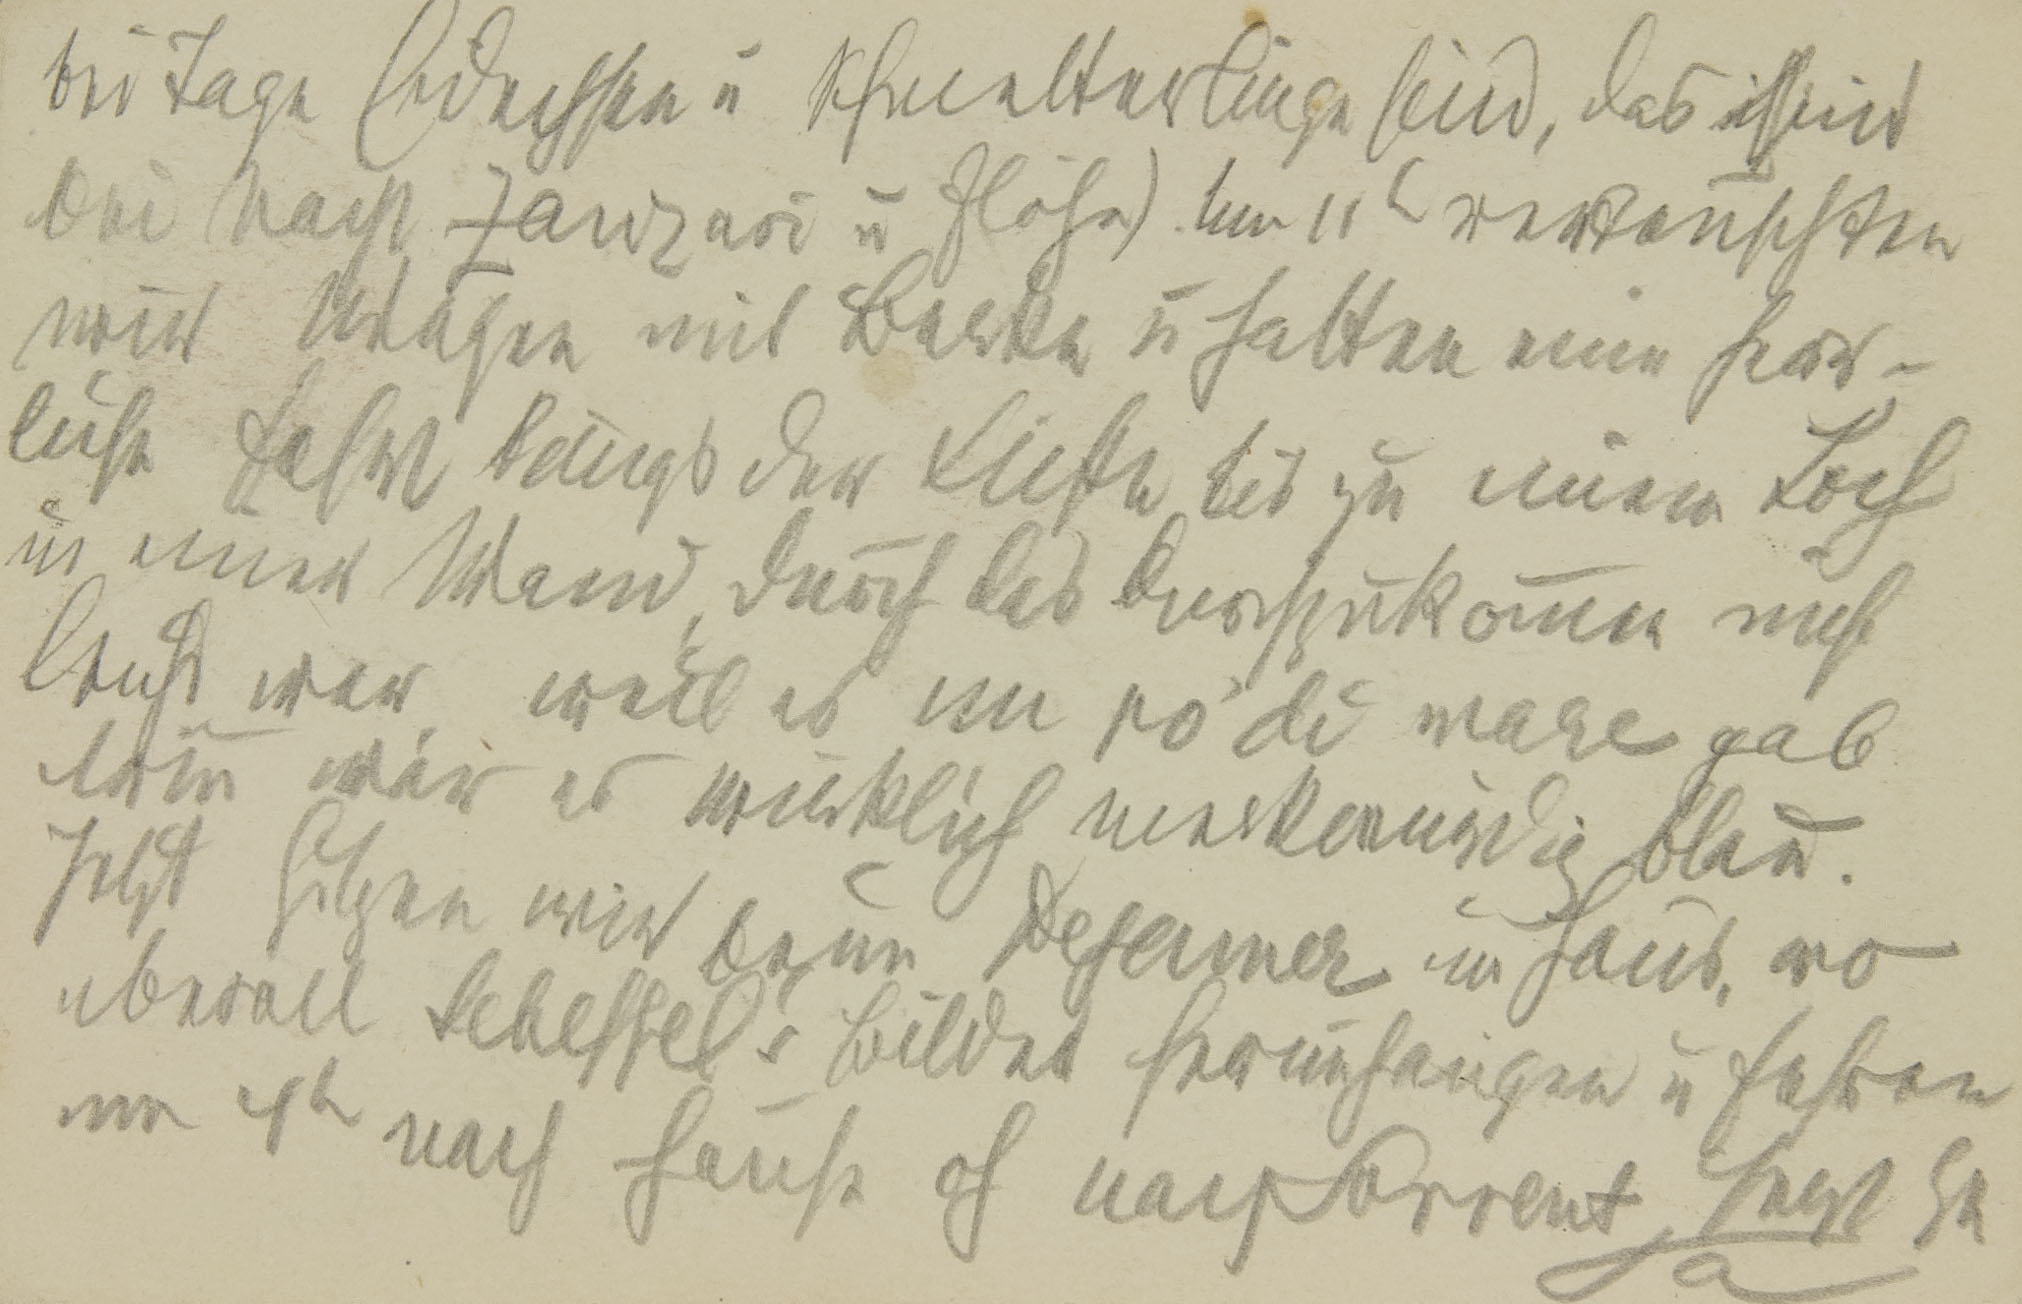 bei Tage Eidechsen u Schmetterlinge sind, das sind
bei Nacht Zanzari u Flöhe) Um 11h vertauschten
wir Wagen mit Barke u hatten eine herr-
liche Fahrt längs der Küste bis zu einem Loch
in einer Wand, durch das durchzukom̅en nicht
leicht war, weil es un po' di mare gab
drin war es wirklich merkwürdig blau.
Jetzt sitzen wir beim im Haus, wo
überall Scheffel's Bilder herumhängen u fahren
um 4h nach Hause oh nach Sorrent